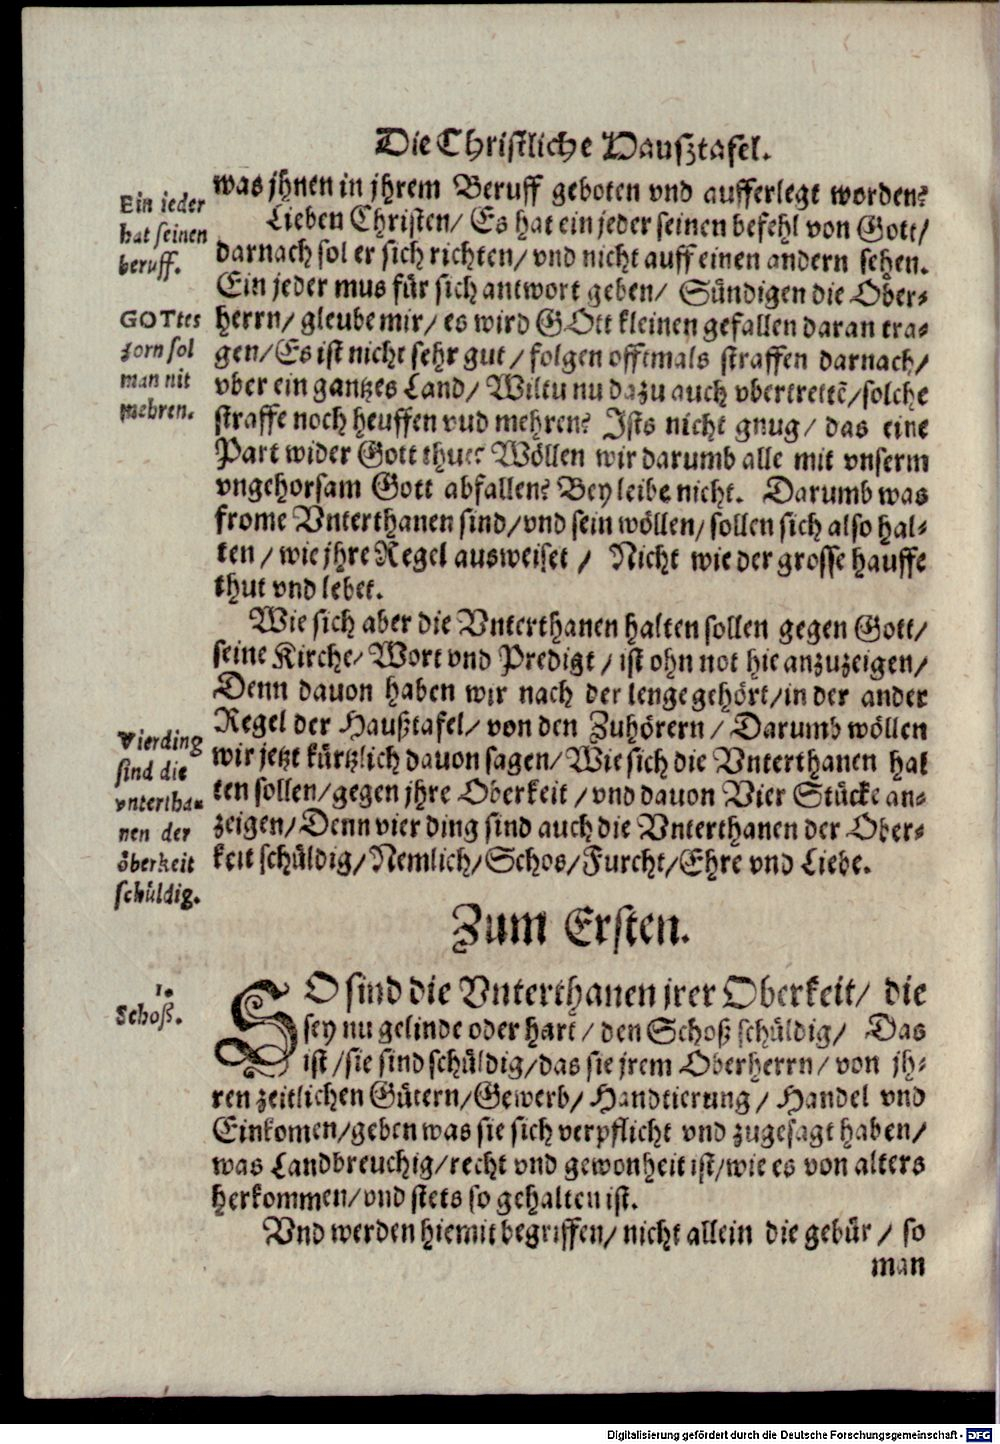 Die Christliche Hausztafel.
was jhnen in jhrem Beruff geboten vnd aufferlegt worden?
Ein jeder
hat seinen
beruff.
Lieben Christen/ Es hat ein jeder seinen befehl von Gott/
darnach sol er sich richten/ vnd nicht auff einen andern sehen.
Ein jeder mus für sich antwort geben/ Sündigen die Ober-
GOTtes
zorn sol
man nit
mehren.
herrn/ gleube mir/ es wird GOtt kleinen gefallen daran tra-
gen/ Es ist nicht sehr gut/ folgen offtmals straffen darnach/
vber ein gantzes Land/ Wiltu nu dazu auch vbertrettē/ solche
straffe noch heuffen vnd mehren? Ists nicht gnug/ das eine
Part wider Gott thuet? Wöllen wir darumb alle mit vnserm
vngehorsam Gott abfallen? Bey leibe nicht. Darumb was
frome Vnterthanen sind/ vnd sein wöllen/ sollen sich also hal-
ten/ wie jhre Regel ausweiset/ Nicht wie der grosse hauffe
thut vnd lebet.
Wie sich aber die Vnterthanen halten sollen gegen Gott/
seine Kirche/ Wort vnd Predigt/ ist ohn not hie anzuzeigen/
Denn dauon haben wir nach der lenge gehört/ in der ander
Regel der Haußtafel/ von den Zuhörern/ Darumb wöllen
Vierding
sind die
vntertha-
nen der
öberkeit
schüldig.
wir jetzt kürtzlich dauon sagen/ Wie sich die Vnterthanen hal
ten sollen/ gegen jhre Oberkeit/ vnd dauon Vier Stücke an-
zeigen/ Denn vier ding sind auch die Vnterthanen der Ober-
keit schüldig/ Nemlich/ Schos/ Furcht/ Ehre vnd Liebe.
Zum Ersten.
1.
Schoß.
SO sind die Vnterthanen jrer Oberkeit/ die
sey nu gelinde oder hart/ den Schoß schüldig/ Das
ist/ sie sind schüldig/ das sie jrem Oberherrn/ von jh-
ren zeitlichen Gütern/ Gewerb/ Handtierung/ Handel vnd
Einkomen/ geben was sie sich verpflicht vnd zugesagt haben/
was Landbreuchig/ recht vnd gewonheit ist/ wie es von alters
herkommen/ vnd stets so gehalten ist.
Vnd werden hiemit begriffen/ nicht allein die gebür/ so
man
Digitalisierung gefördert durch die Deutsche Forschungsgemeinschaft - DFG